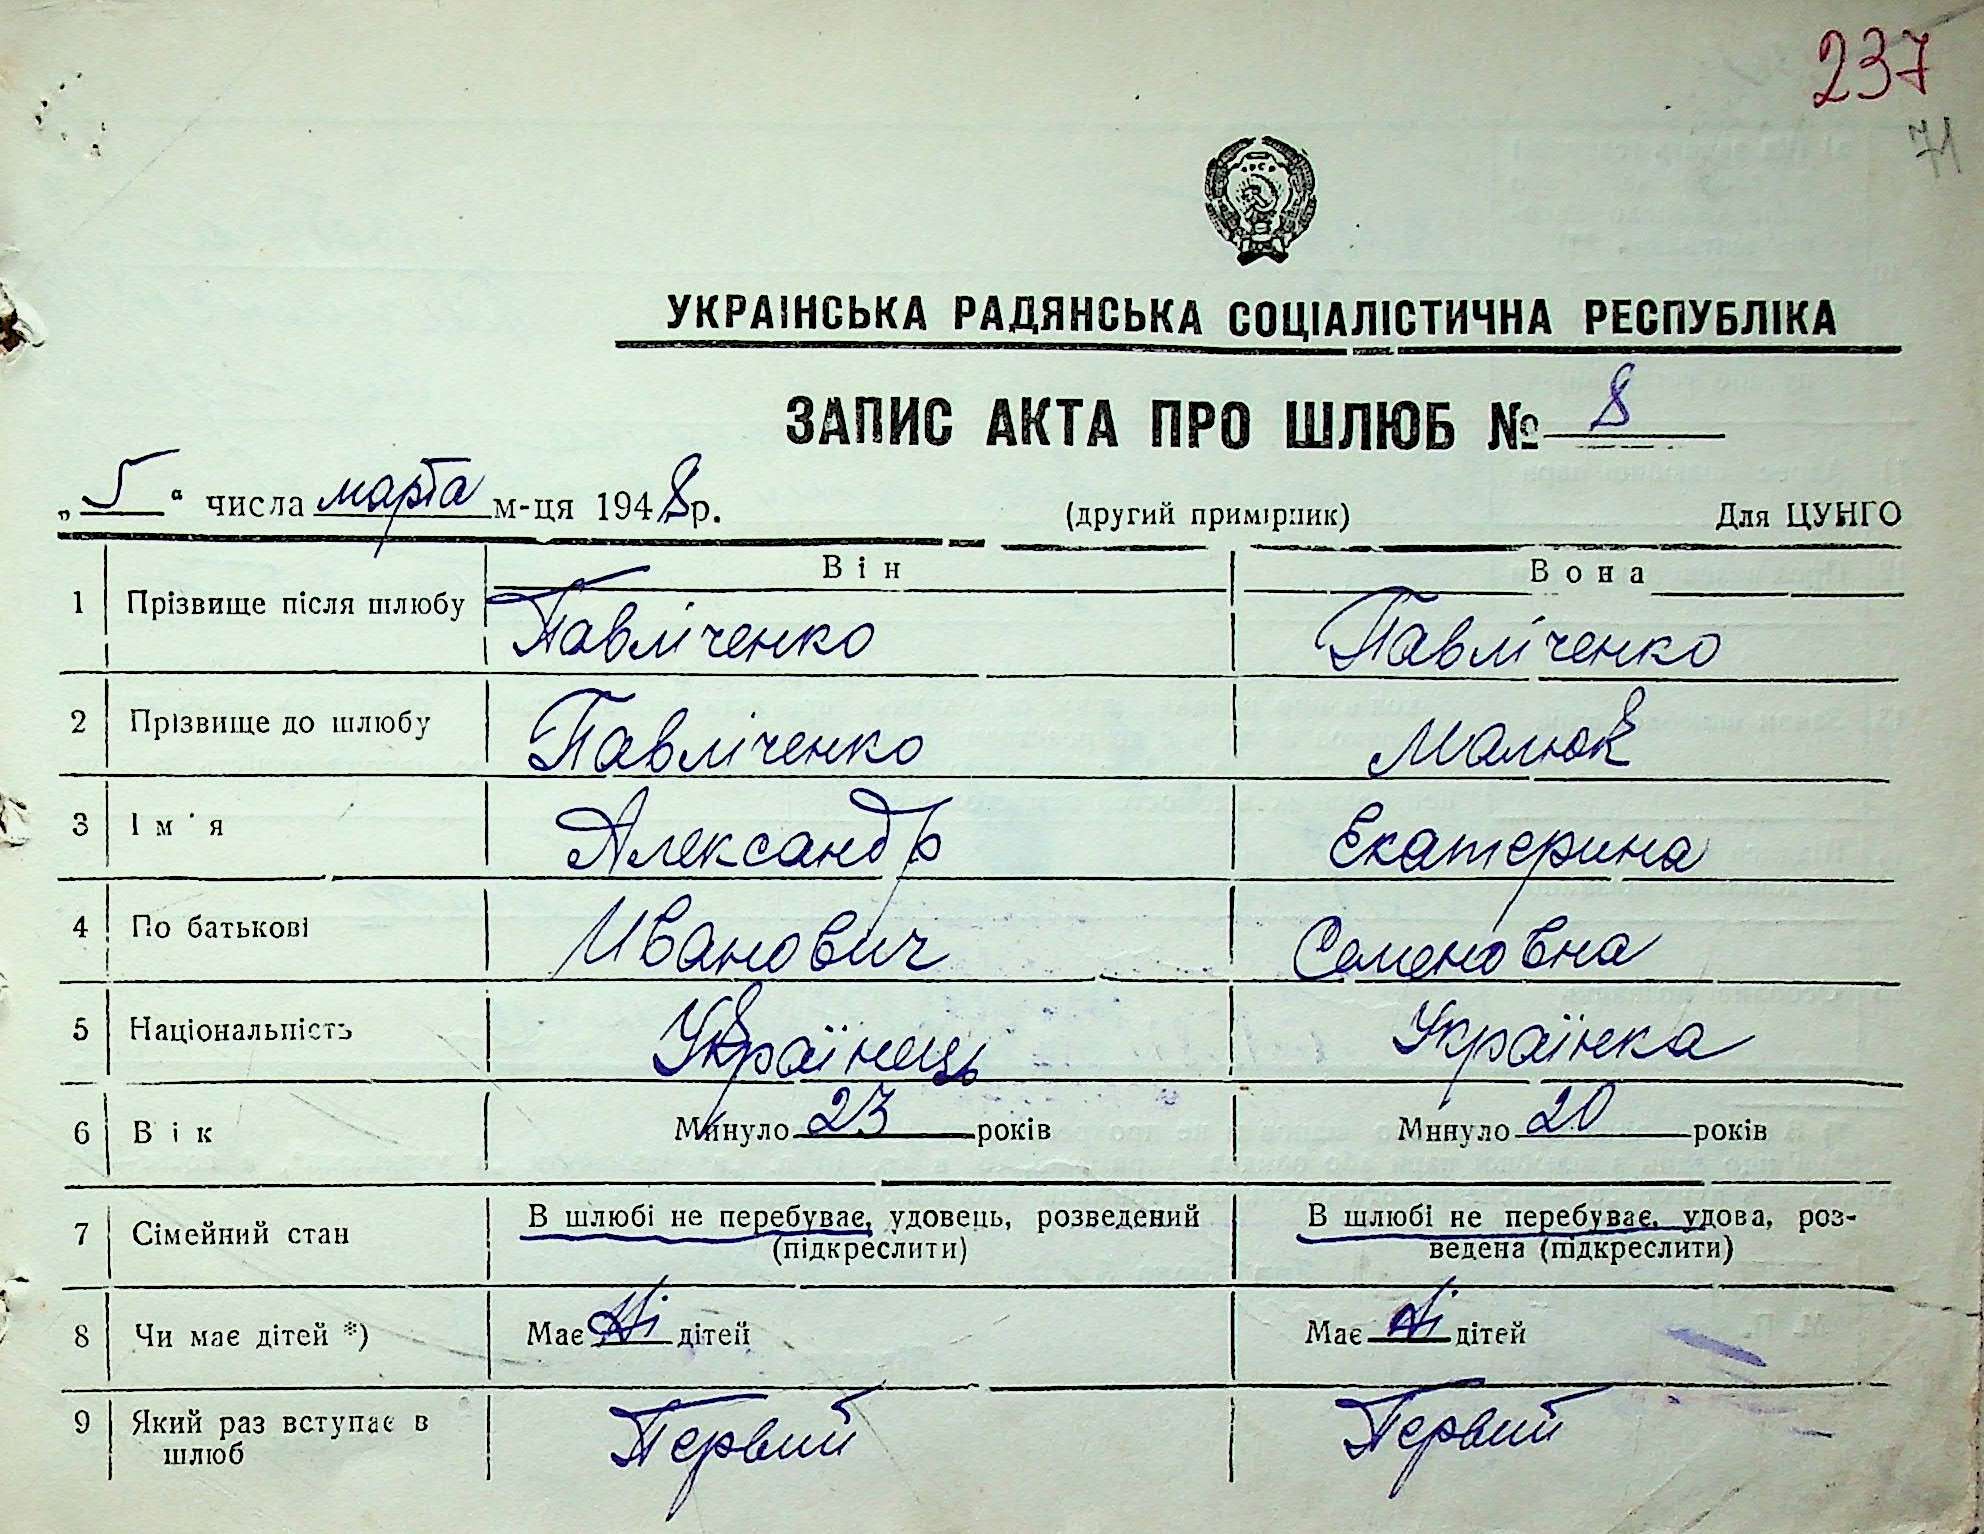 237
71
УКРАЇНСЬКА РАДЯНСЬКА СОЦІАЛІСТИЧНА РЕСПУБЛІКА
ЗАПИС АКТА ПРО ШЛЮБ № 8
„5“ числа марта м-ця 1948 р. (другий примірник) Для ЦУНГО
Він Вона
1 Прізвище після шлюбу Павліченко Павліченко
2 Прізвище до шлюбу Павліченко Малюк
3 Ім'я Александр Екатерина
4 По батькові Иванович Семеновна
5 Національність Українець Українка
6 Вік Минуло 23 років Минуло 20 років
7 Сімейний стан В шлюбі не перебуває, удовець, розведений (підкреслити) В шлюбі не перебуває, удова, роз-
ведена (підкреслити)
8 Чи має дітей *) Має Ні дітей Має Ні дітей
9 Який раз вступає в Первий Первий
шлюб